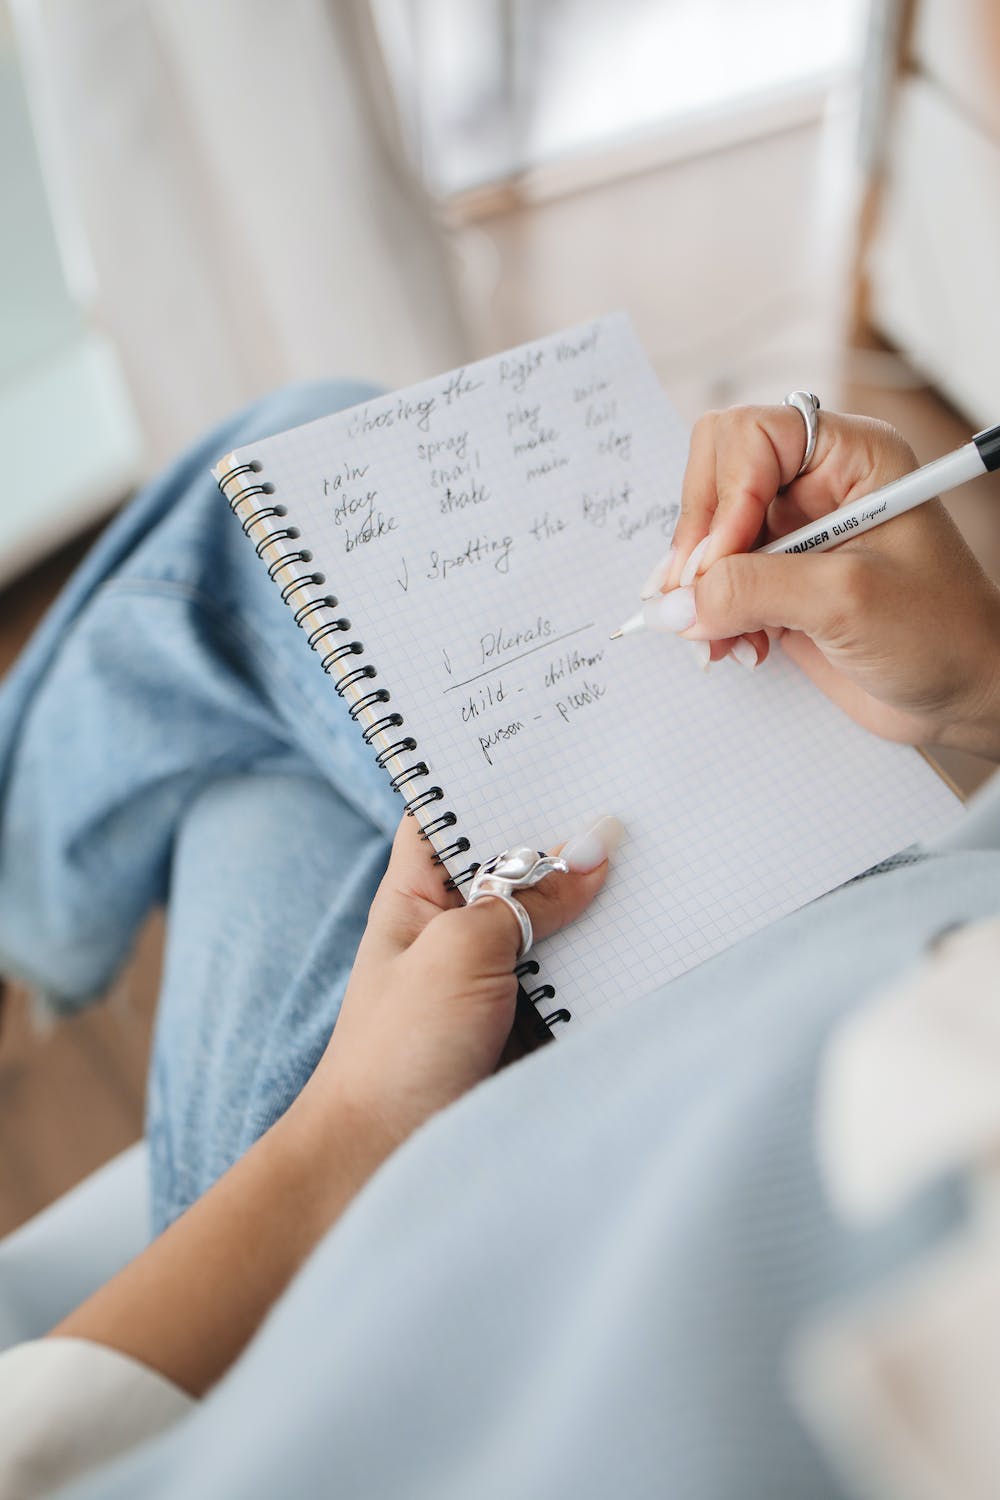 Choosing the Right Vowel
rain spray play
stay snail make fall
brake shake main clay
✓ Spotting the Right
Spelling
✓ Plurals.
child - children
person - people
HAUSER GLISS Liquid